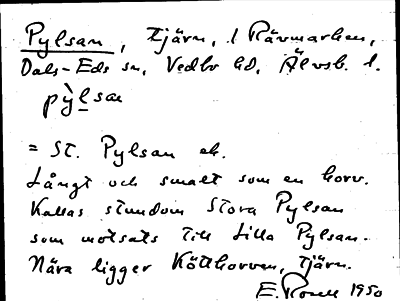 Pylsan, tjärn, i Rävmarken,
Dals-Eds sn, Vedbo hd, Älvsb. l.
pỳlsan
= St. Pylsan ek.
Långt och smalt som en korv.
Kallas stundom Stora Pylsan
som motsats till Lilla Pylsan.
Nära ligger Kötthorven, tjärn.
E. Rosell 1950